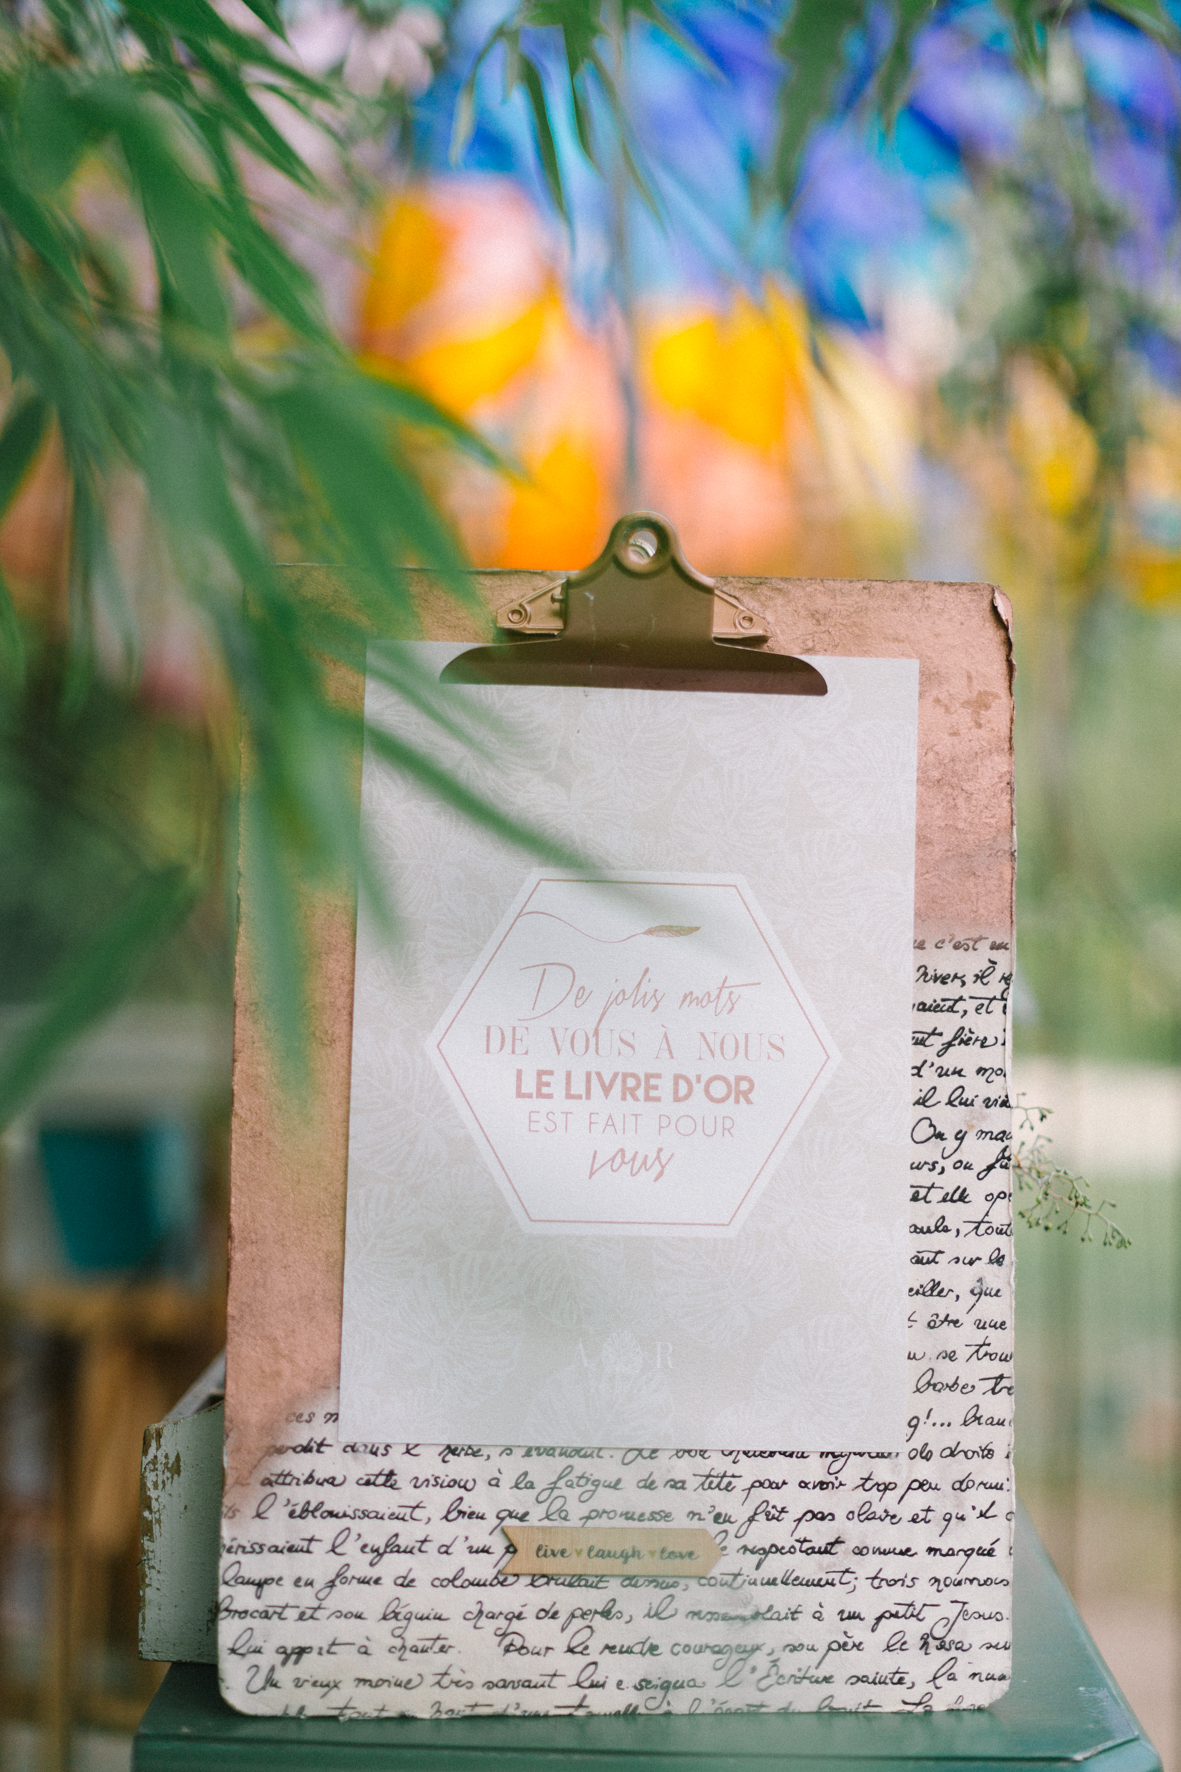 De jolis mots
DE VOUS À NOUS
LE LIVRE D'OR
EST FAIT POUR
vous
R
c'est
hivers, il
aient, et
fière
d'un
il lui
On y
ou
et elle
tout
sur la
que
être une
se trou
barbe
g!...
ces
perdit dans l' herbe, s'évanouit. des droits
attribua cette vision à la fatigue de sa tête pour avoir trop peu dormi.
l'éblouissaient, bien que la promesse n'en fût pas claire et qu'il
érissaient l'enfant d'un live laugh love respectant comme marqué
lampe en forme de colombe brûlait dessus, continuellement; trois
brocart et son béguin chargé de perles, il ressemblait à un petit Jesus.
lui apprit à chanter. Pour le rendre courageux, son père le hissa sur
Un vieux moine très savant lui e seigna l'Écriture sainte, la